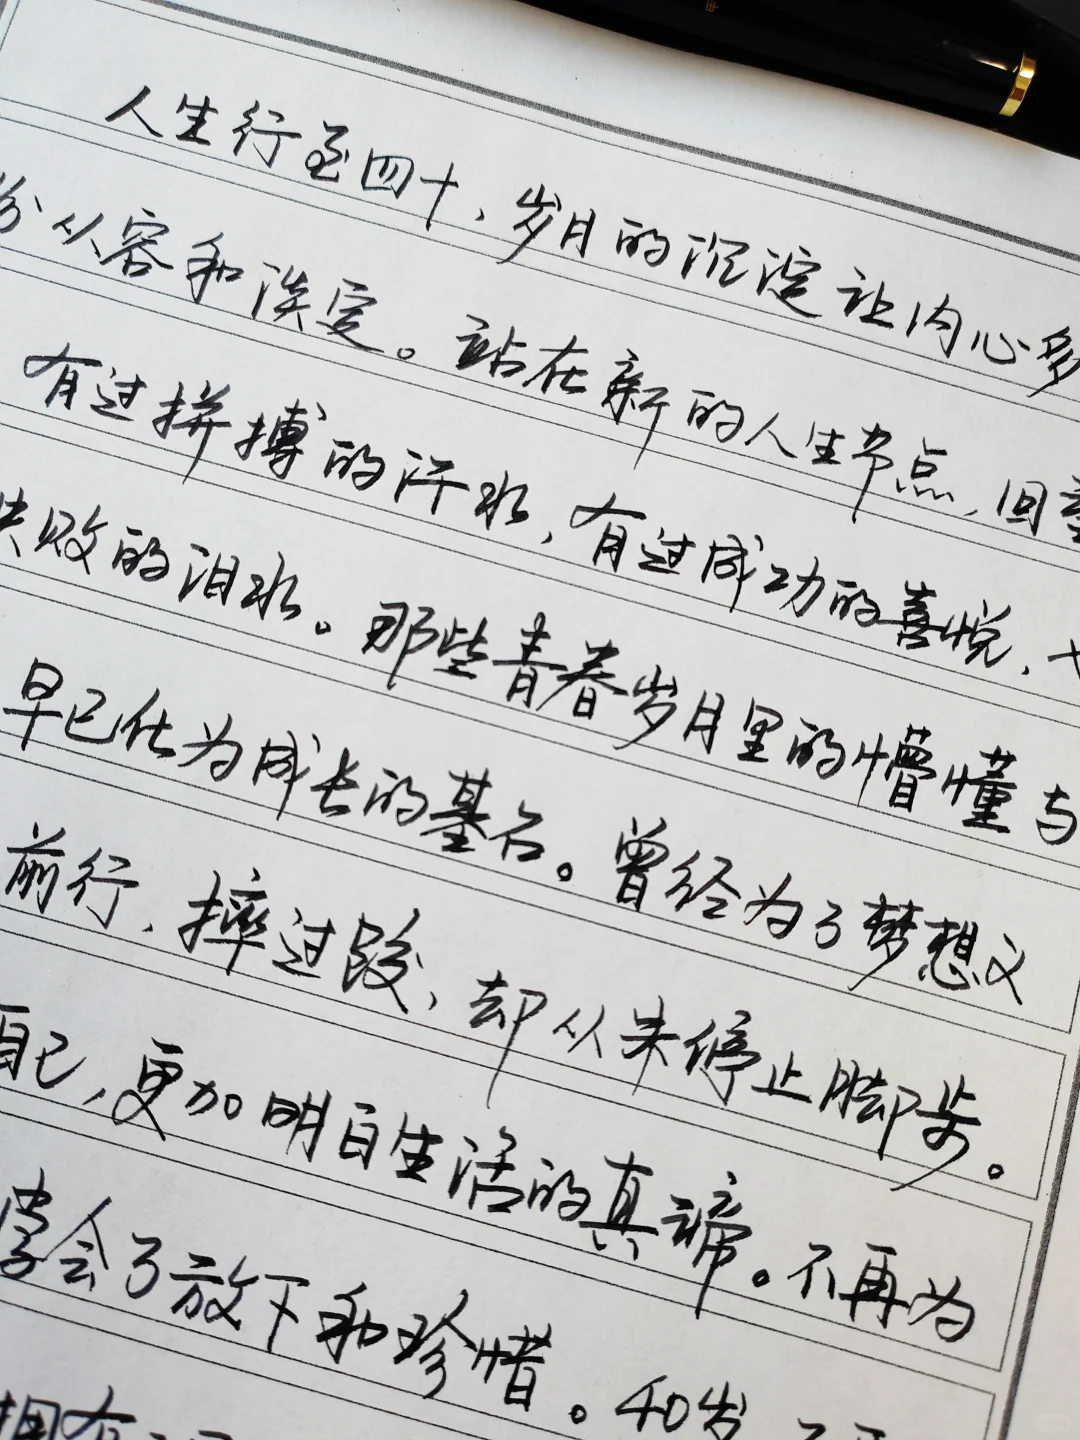 人生行至四十，岁月的沉淀让内心多
份从容和淡定。站在新的人生节点，回望
有过拼搏的汗水，有过成功的喜悦，也
失败的泪水。那些青春岁月里的懵懂与
早已化为成长的基石。曾经为了梦想义
前行，摔过跤，却从未停止脚步。
自己，更加明白生活的真谛。不再为
学会了放下和珍惜。40岁
拥有